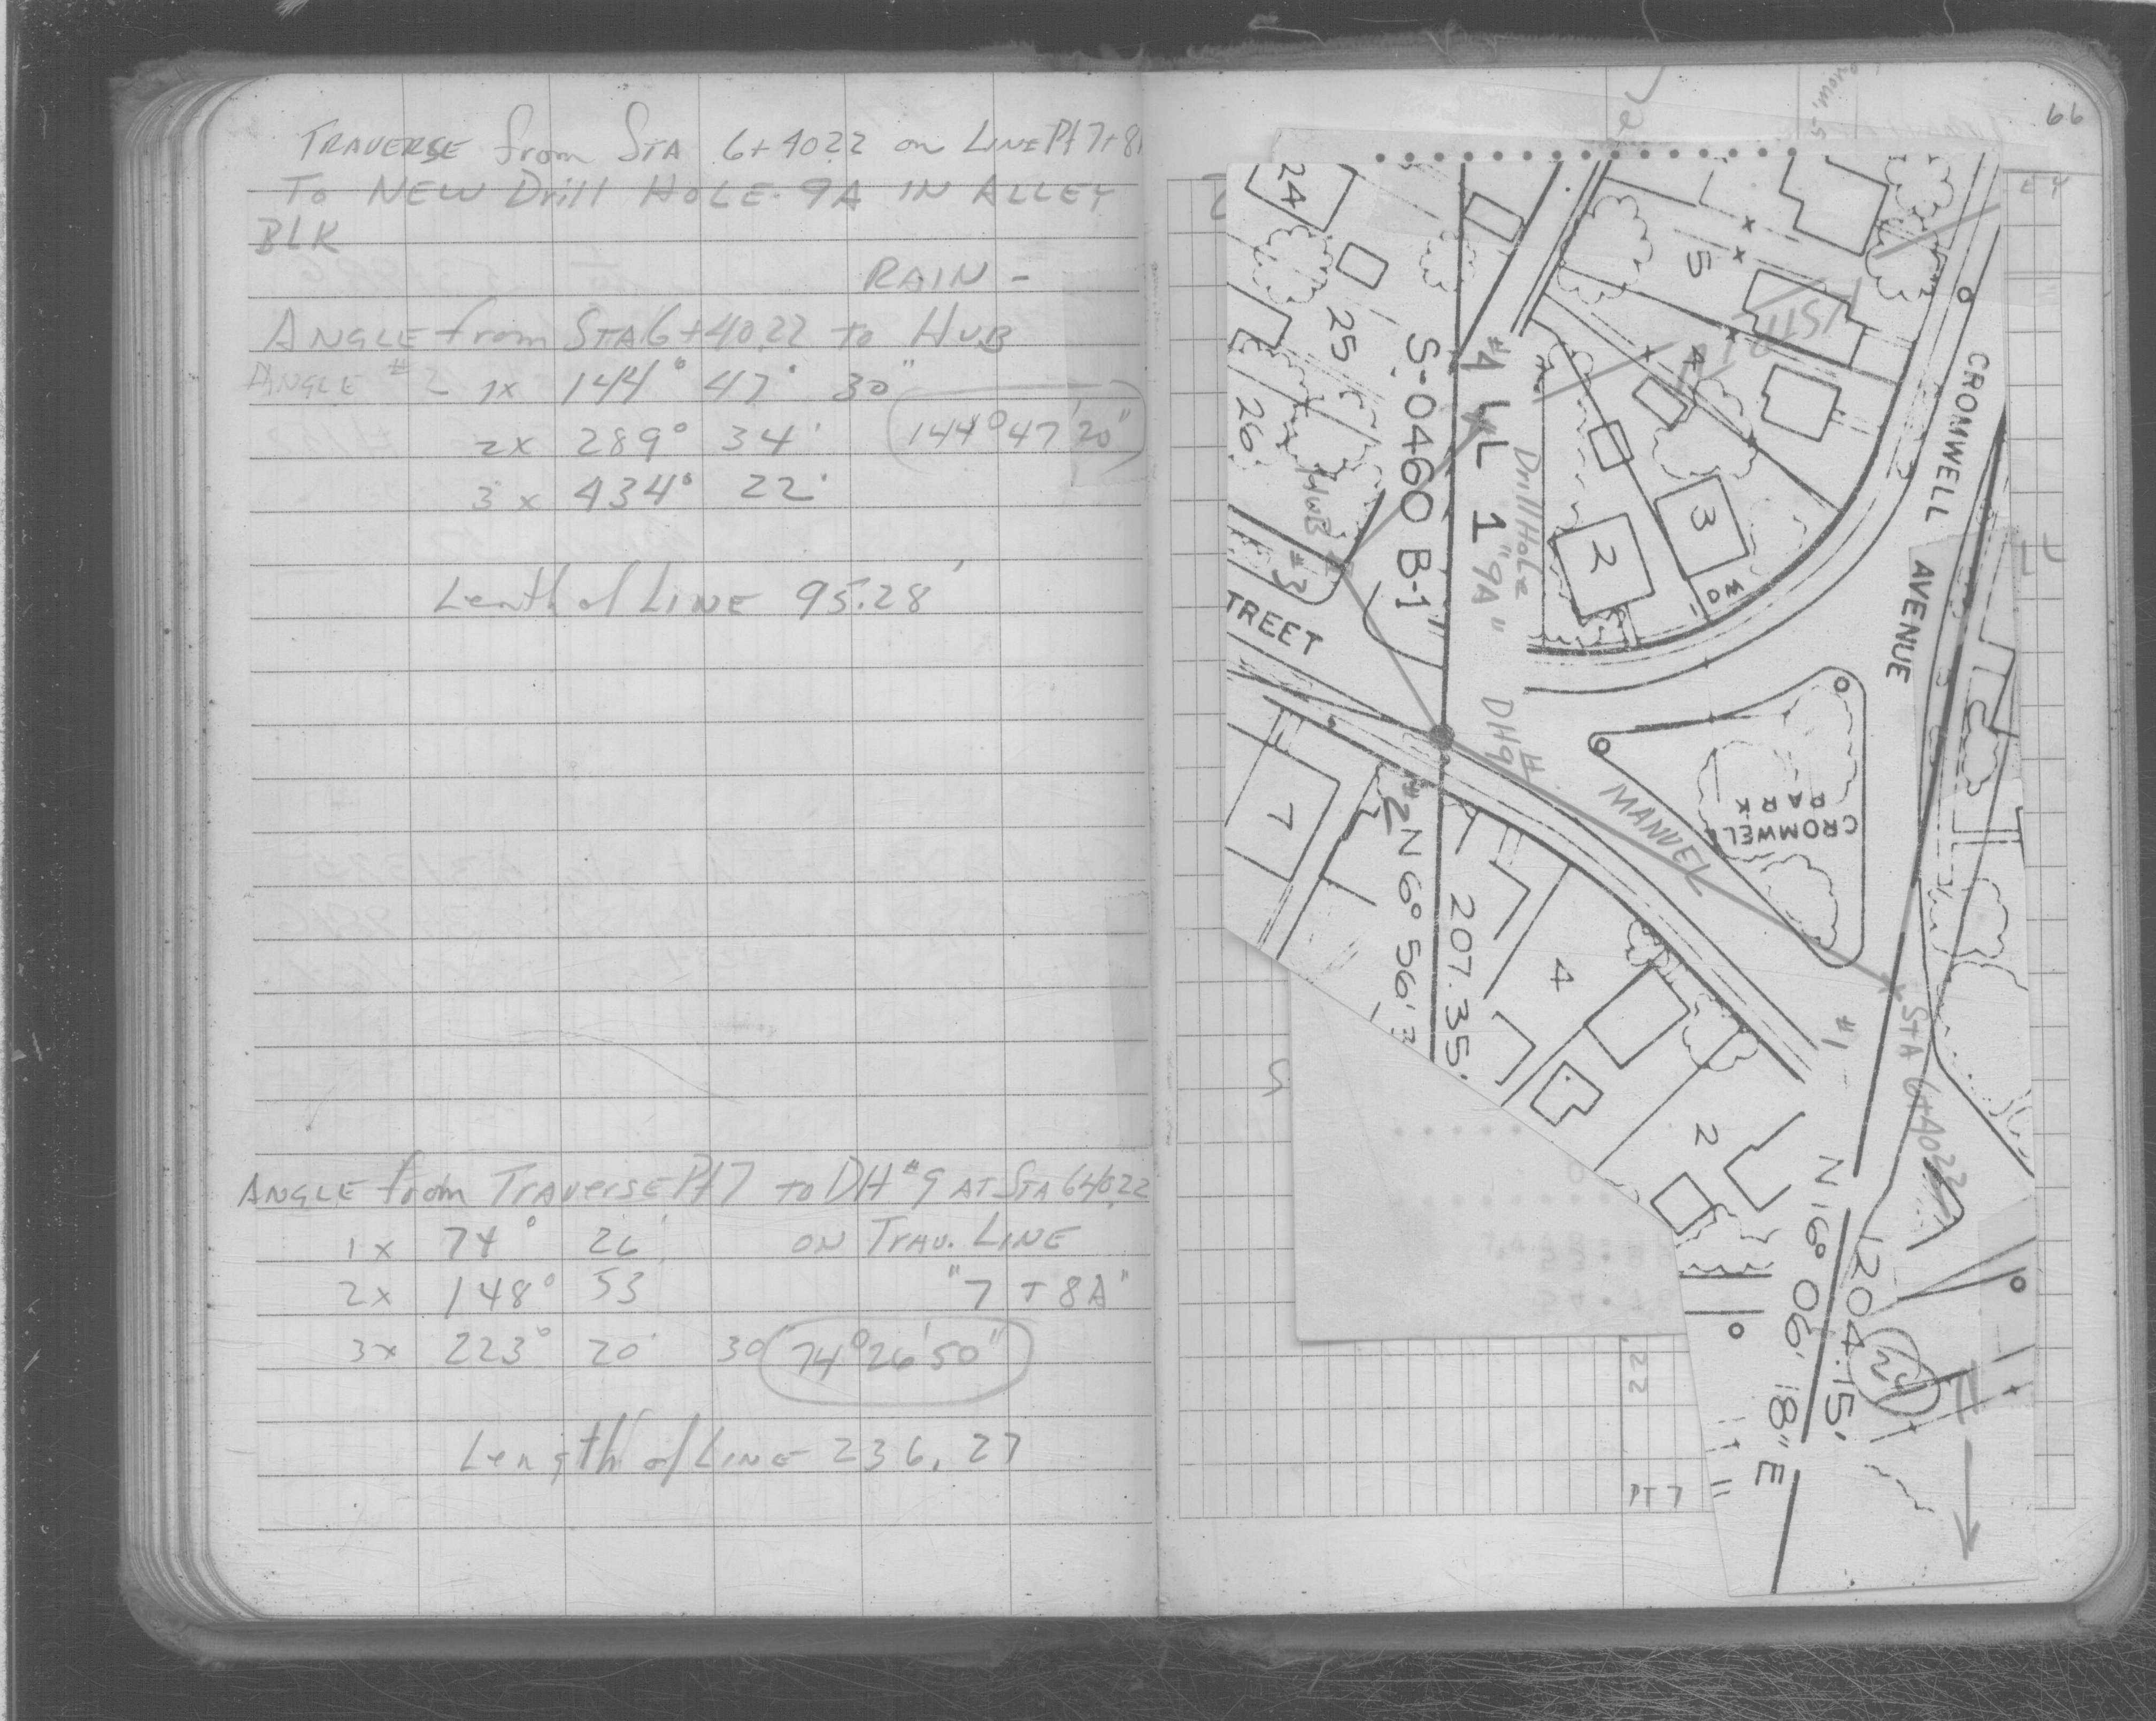 TRAVERSE from STA 6+4022 on LINE Pt 7+8
TO NEW Drill HOLE 9A IN ALLEY
BLK
RAIN -
ANGLE from STA 6+40.22 to HUB
ANGLE #2 1x 144° 47' 30"
2x 289° 34' 144° 47' 20"
3x 434° 22'
Lenth of LINE 95.28'
ANGLE from TRAVERSE Pt 7 to DH #9 AT STA 6+4022
1x 74° 26' ON TRAV. LINE
2x 148° 53 "7 + 8A"
3x 223° 20' 30 74° 26' 50"
Length of LINE 236.27
66
24
25
26
S-0460 B-1
#4
ALL 1
Drill Hole
"9A"
HUB
#3
TREET
5
4
3
2
OM
CROMWELL
AVENUE
CROMWELL
PARK
DH9
#2
MANUEL
7
N 6° 56' 3
207.35'
4
2
#1
STA 6+4022
N 16° 06' 18" E
204.15'
N
22
PT 7